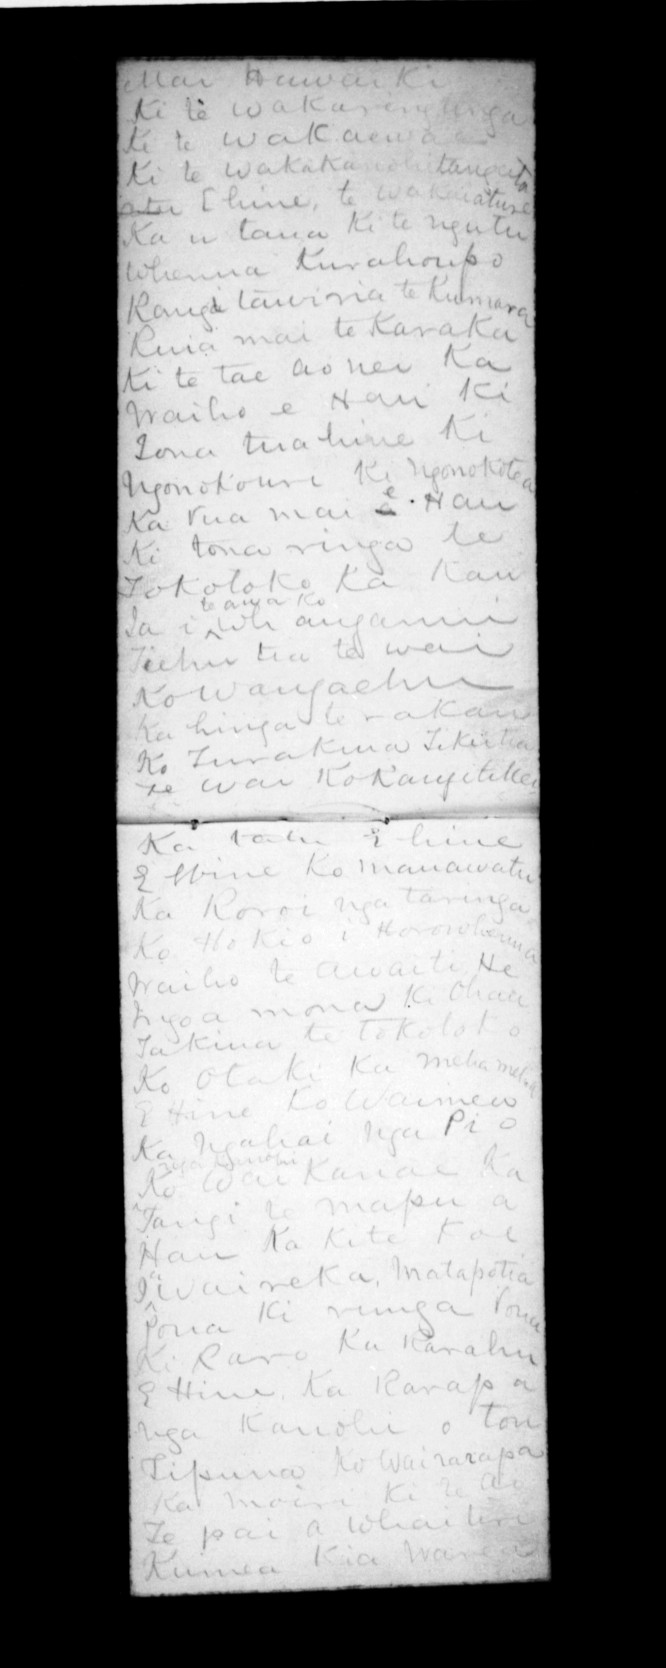 Mai Hawaiki
Ki te wakarerunga
Ki te wakaewa
Ki te wakakanohitangata
E hine, te wakaiature
Ka u taua Ki te ngutu
Whenua Kurahoupo
Rangi tawiria te Kumara
Ruia mai te Karaka
Ki te tae ao nei Ka
Waiho e Hau Ki
Tona tuahine Ki
Ngonokouri Ki Ngonokotea
Ka rua mai e Hau
Ki tona ringa te
Tokotoko Ka Kau
Ia i te awa Ko Whanganui
Tiehu tia te wai
Ko Wangaehu
Ka hinga te rakau
Ko Turakina Tikitia
te wai Ko Rangitikei
Ka tatu E hine
E Hine Ko manawatu
Ka Roroi nga taringa
Ko Hokio i Horowhenua
Waiho te awaiti He
Ingoa mona Ki Ohau
Takina te Tokotoko
Ko Otaki Ka mehameha
E Hine Ko Waimeo
Ka Ngahai nga Pi o
nga Kanohi
Ko Wai Kanae Ka
Tangi te mapu a
Hau Ka Kite Koe
I a Waireka, Matapotia
Pona Ki runga Rona
Ki Raro Ka Rarahu
E Hine. Ka Rarapa
nga Kanohi o ton
Tipuna Ko Wairarapa
Ka moiri Ki te ao
Te pai a Whaitiri
Kumea Kia Warea